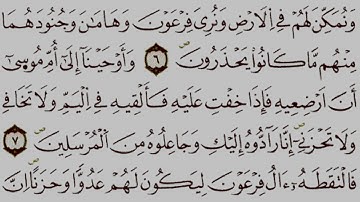 وَنُمَكِّنَ لَهُمْ فِي الْأَرْضِ وَنُرِيَ فِرْعَوْنَ وَهَامَانَ وَجُنُودَهُمَا
مِنْهُم مَّا كَانُوا يَحْذَرُونَ ۝٦ وَأَوْحَيْنَا إِلَىٰ أُمِّ مُوسَىٰ
أَنْ أَرْضِعِيهِ فَإِذَا خِفْتِ عَلَيْهِ فَأَلْقِيهِ فِي الْيَمِّ وَلَا تَخَافِي
وَلَا تَحْزَنِي إِنَّا رَادُّوهُ إِلَيْكِ وَجَاعِلُوهُ مِنَ الْمُرْسَلِينَ ۝٧
فَالْتَقَطَهُ ءَالُ فِرْعَوْنَ لِيَكُونَ لَهُمْ عَدُوًّا وَحَزَنًا إِنَّ